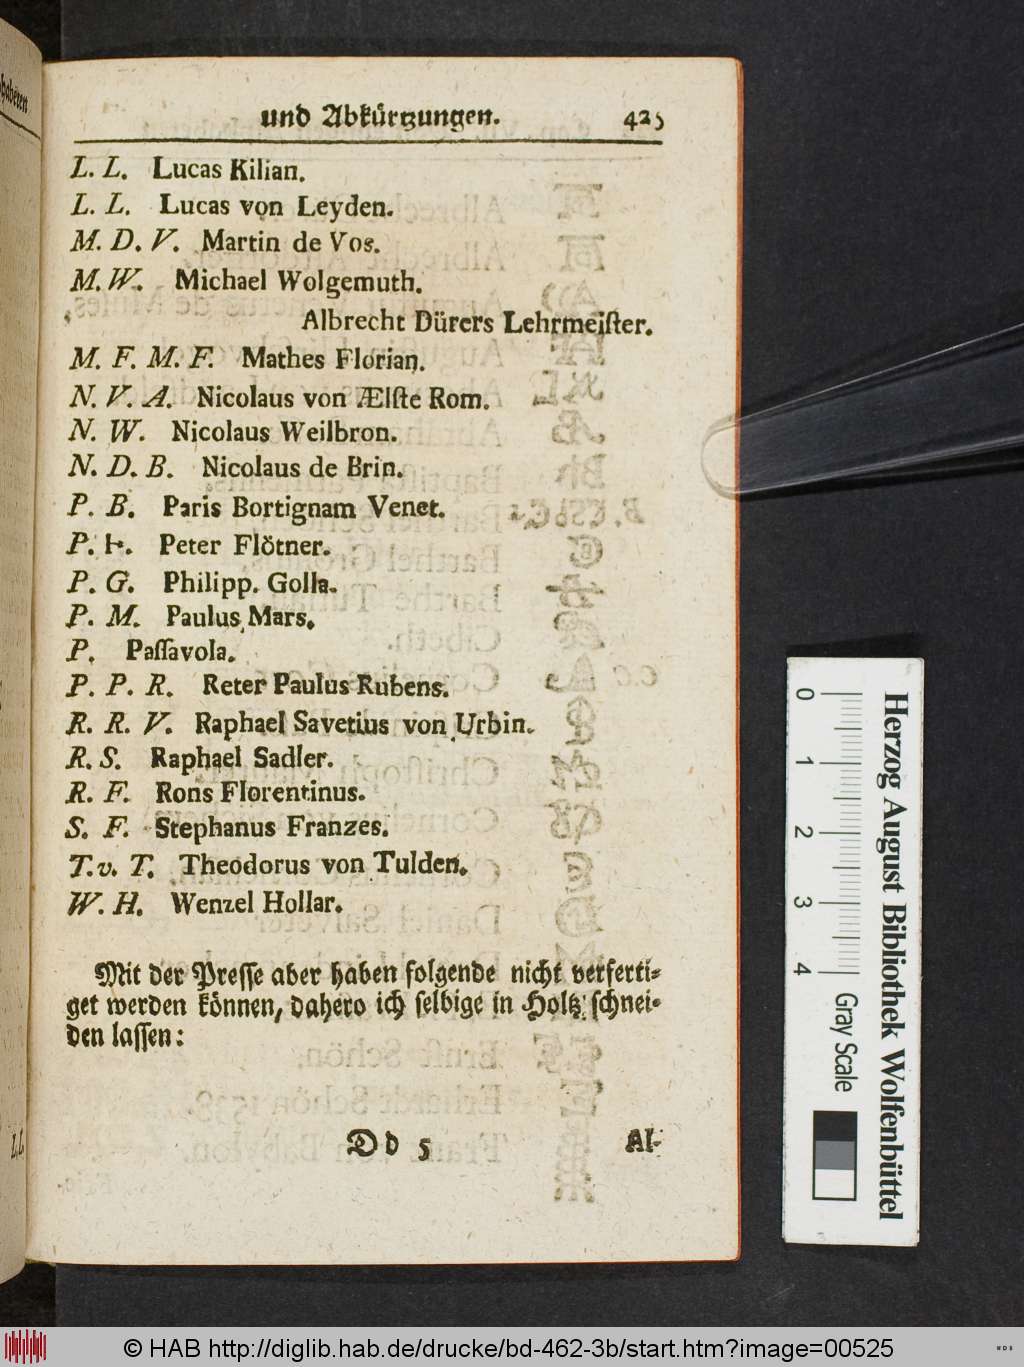 und Abkürtzungen. 425
L. L. Lucas Kilian.
L. L. Lucas von Leyden.
M. D. V. Martin de Vos.
M. W. Michael Wolgemuth.
Albrecht Dürers Lehrmeiſter.
M. F. M. F. Mathes Florian.
N. V. A. Nicolaus von Ælſte Rom.
N. W. Nicolaus Weilbron.
N. D. B. Nicolaus de Brin.
P. B. Paris Bortignam Venet.
P. Peter Flötner.
P. G. Philipp. Golla.
P. M. Paulus Mars.
P. Paſſavola.
P. P. R. Reter Paulus Rubens.
R. R. V. Raphael Savetius von Urbin.
R. S. Raphael Sadler.
R. F. Rons Florentinus.
S. F. Stephanus Franzes.
T. v. T. Theodorus von Tulden.
W. H. Wenzel Hollar.
Mit der Preſſe aber haben folgende nicht verferti-
get werden können, dahero ich ſelbige in Holtz ſchnei-
den laſſen:
D d 5 Al-
Herzog August Bibliothek Wolfenbüttel
0 1 2 3 4 Gray Scale
© HAB http://diglib.hab.de/drucke/bd-462-3b/start.htm?image=00525